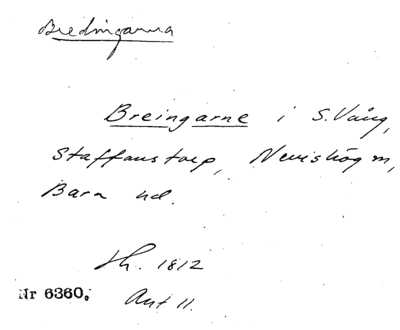 Bredingarna
Breingarne i S. Vång,
Staffanstorp, Nevishög m,
Bara hd.
Sk. 1812
Akt 11.
Nr 6360.